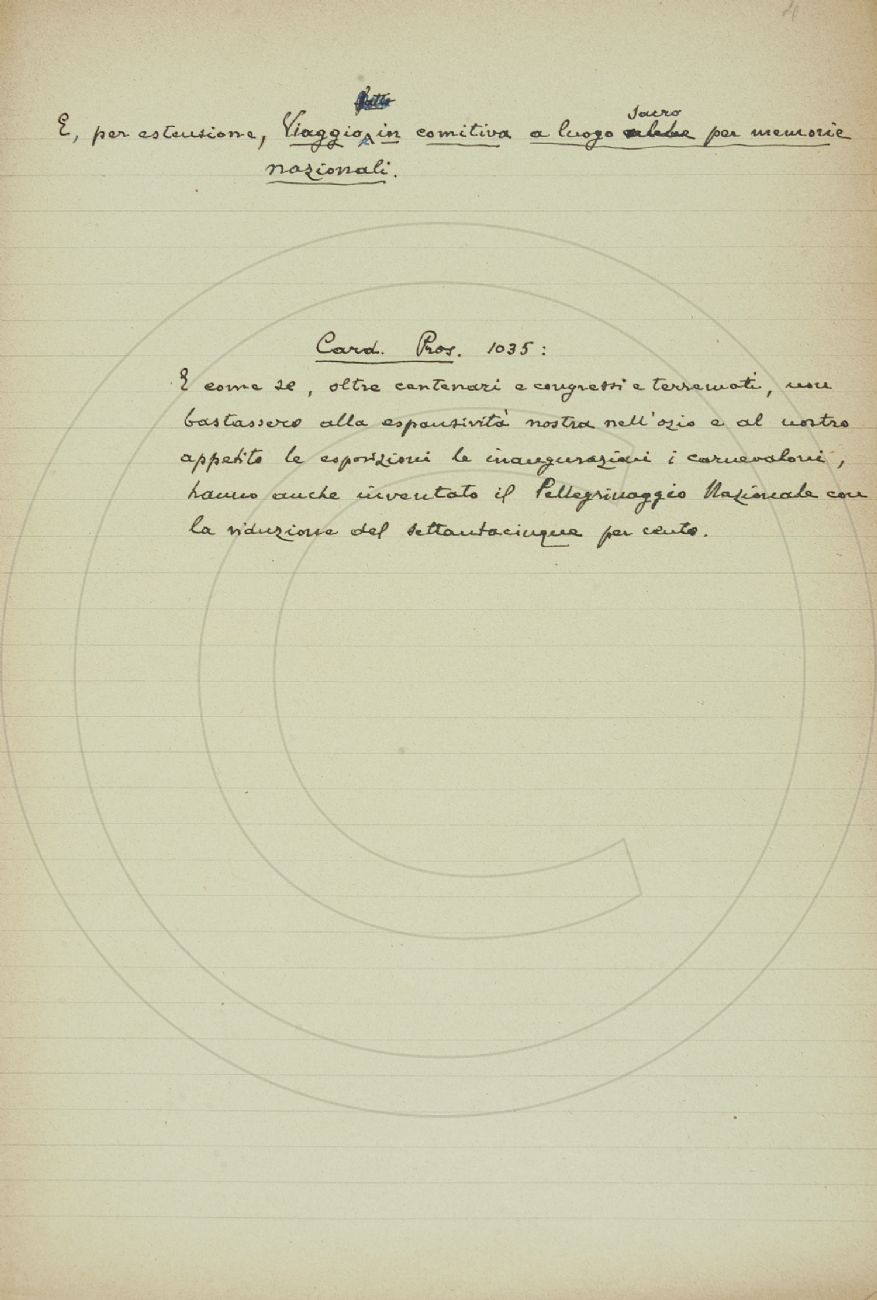 4
fatto
sacro
E, per estensione, Viaggio in comitiva a luogo per memorie
nazionali.
Card. Pros. 1035:
E come se, oltre centenari e congressi e terremoti, non
bastassero alla espansività nostra nell'ozio e al nostro
appetito le esposizioni le inaugurazioni i carnevaloni,
hanno anche inventato il Pellegrinaggio Nazionale con
la riduzione del settantacinque per cento.